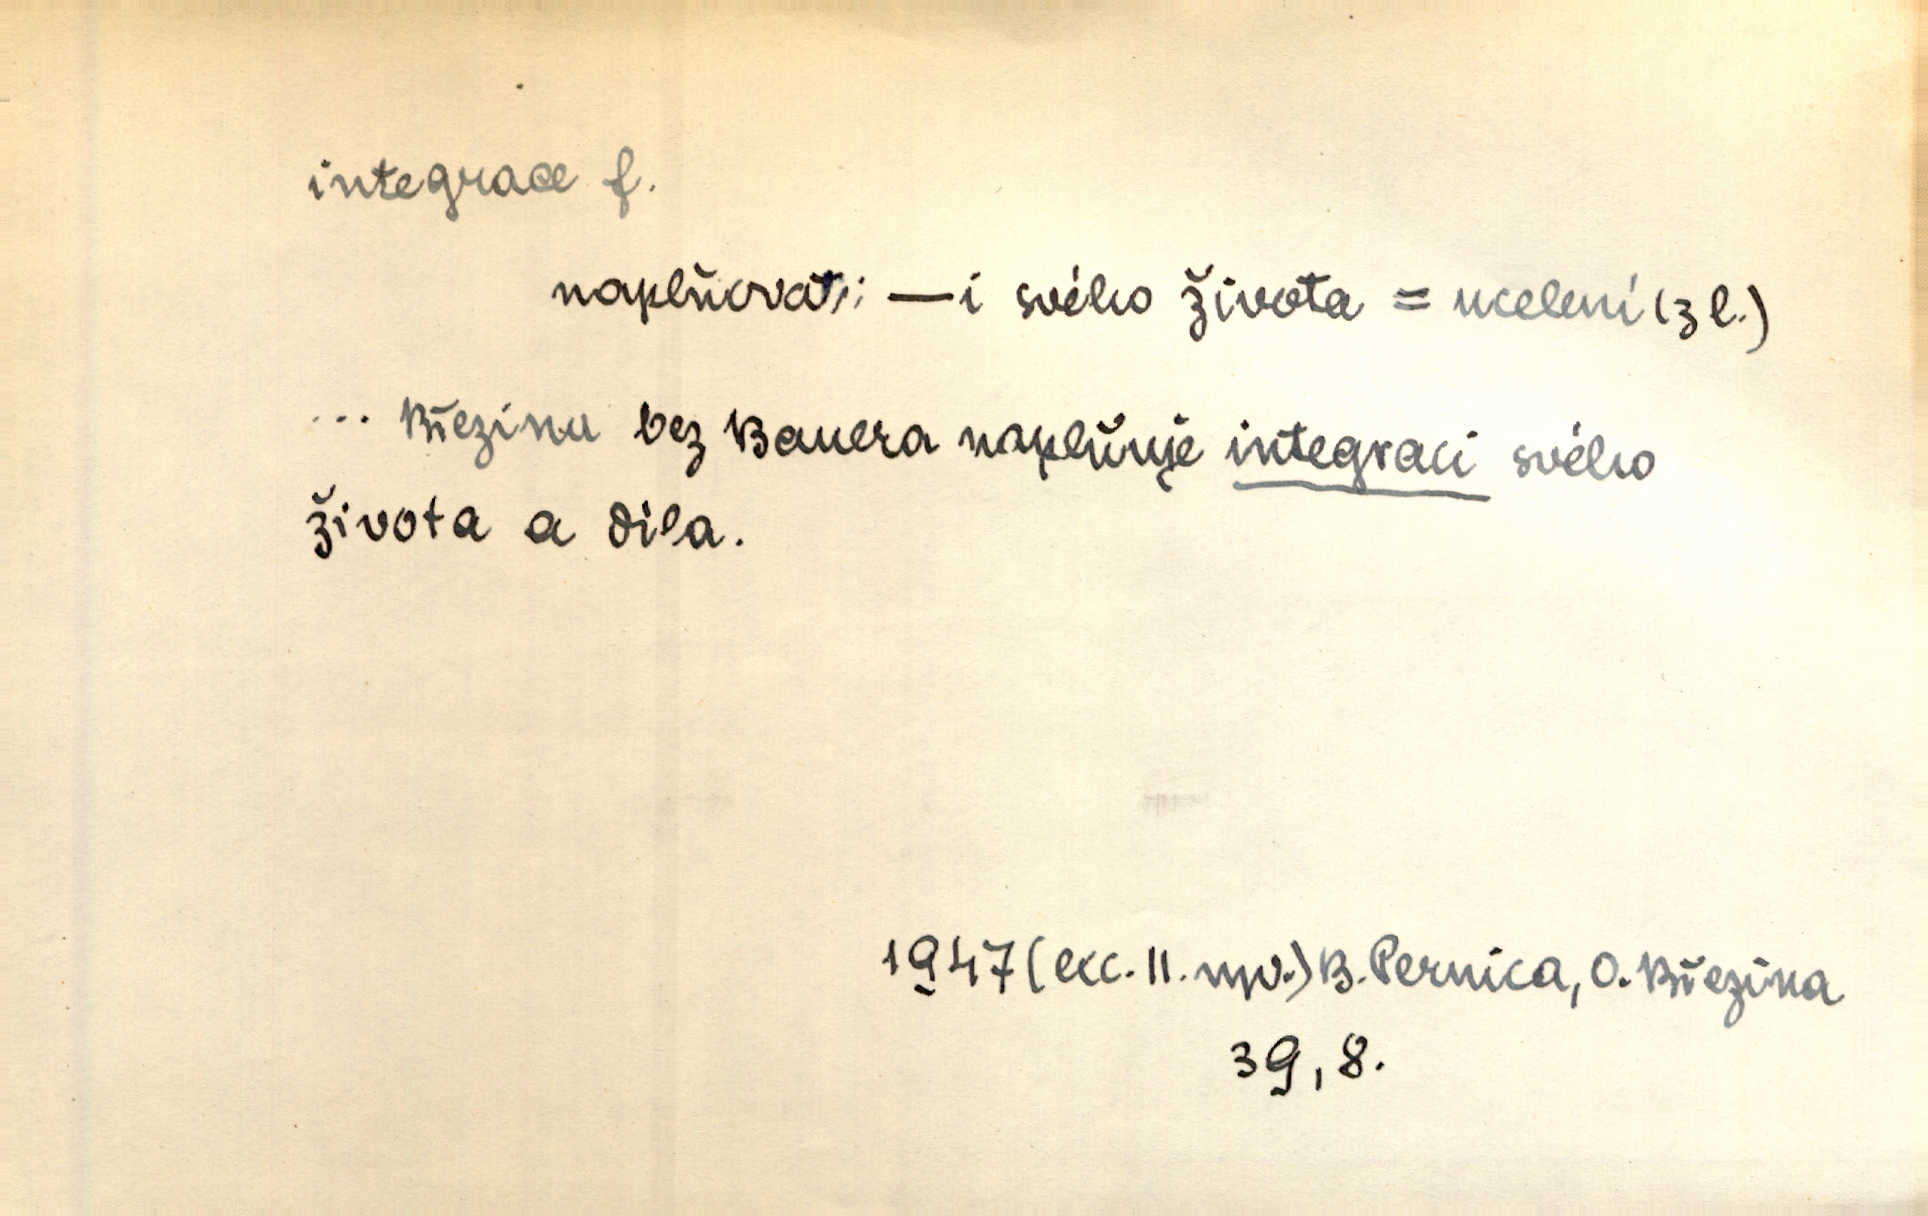 integrace f.
naplňovati: — i svého života = ucelení (zl.)
... Březinu bez Bauera naplňuje integraci svého
života a díla.
1947 (exc. II. vyd.) B. Pernica, O. Březina
39, 8.